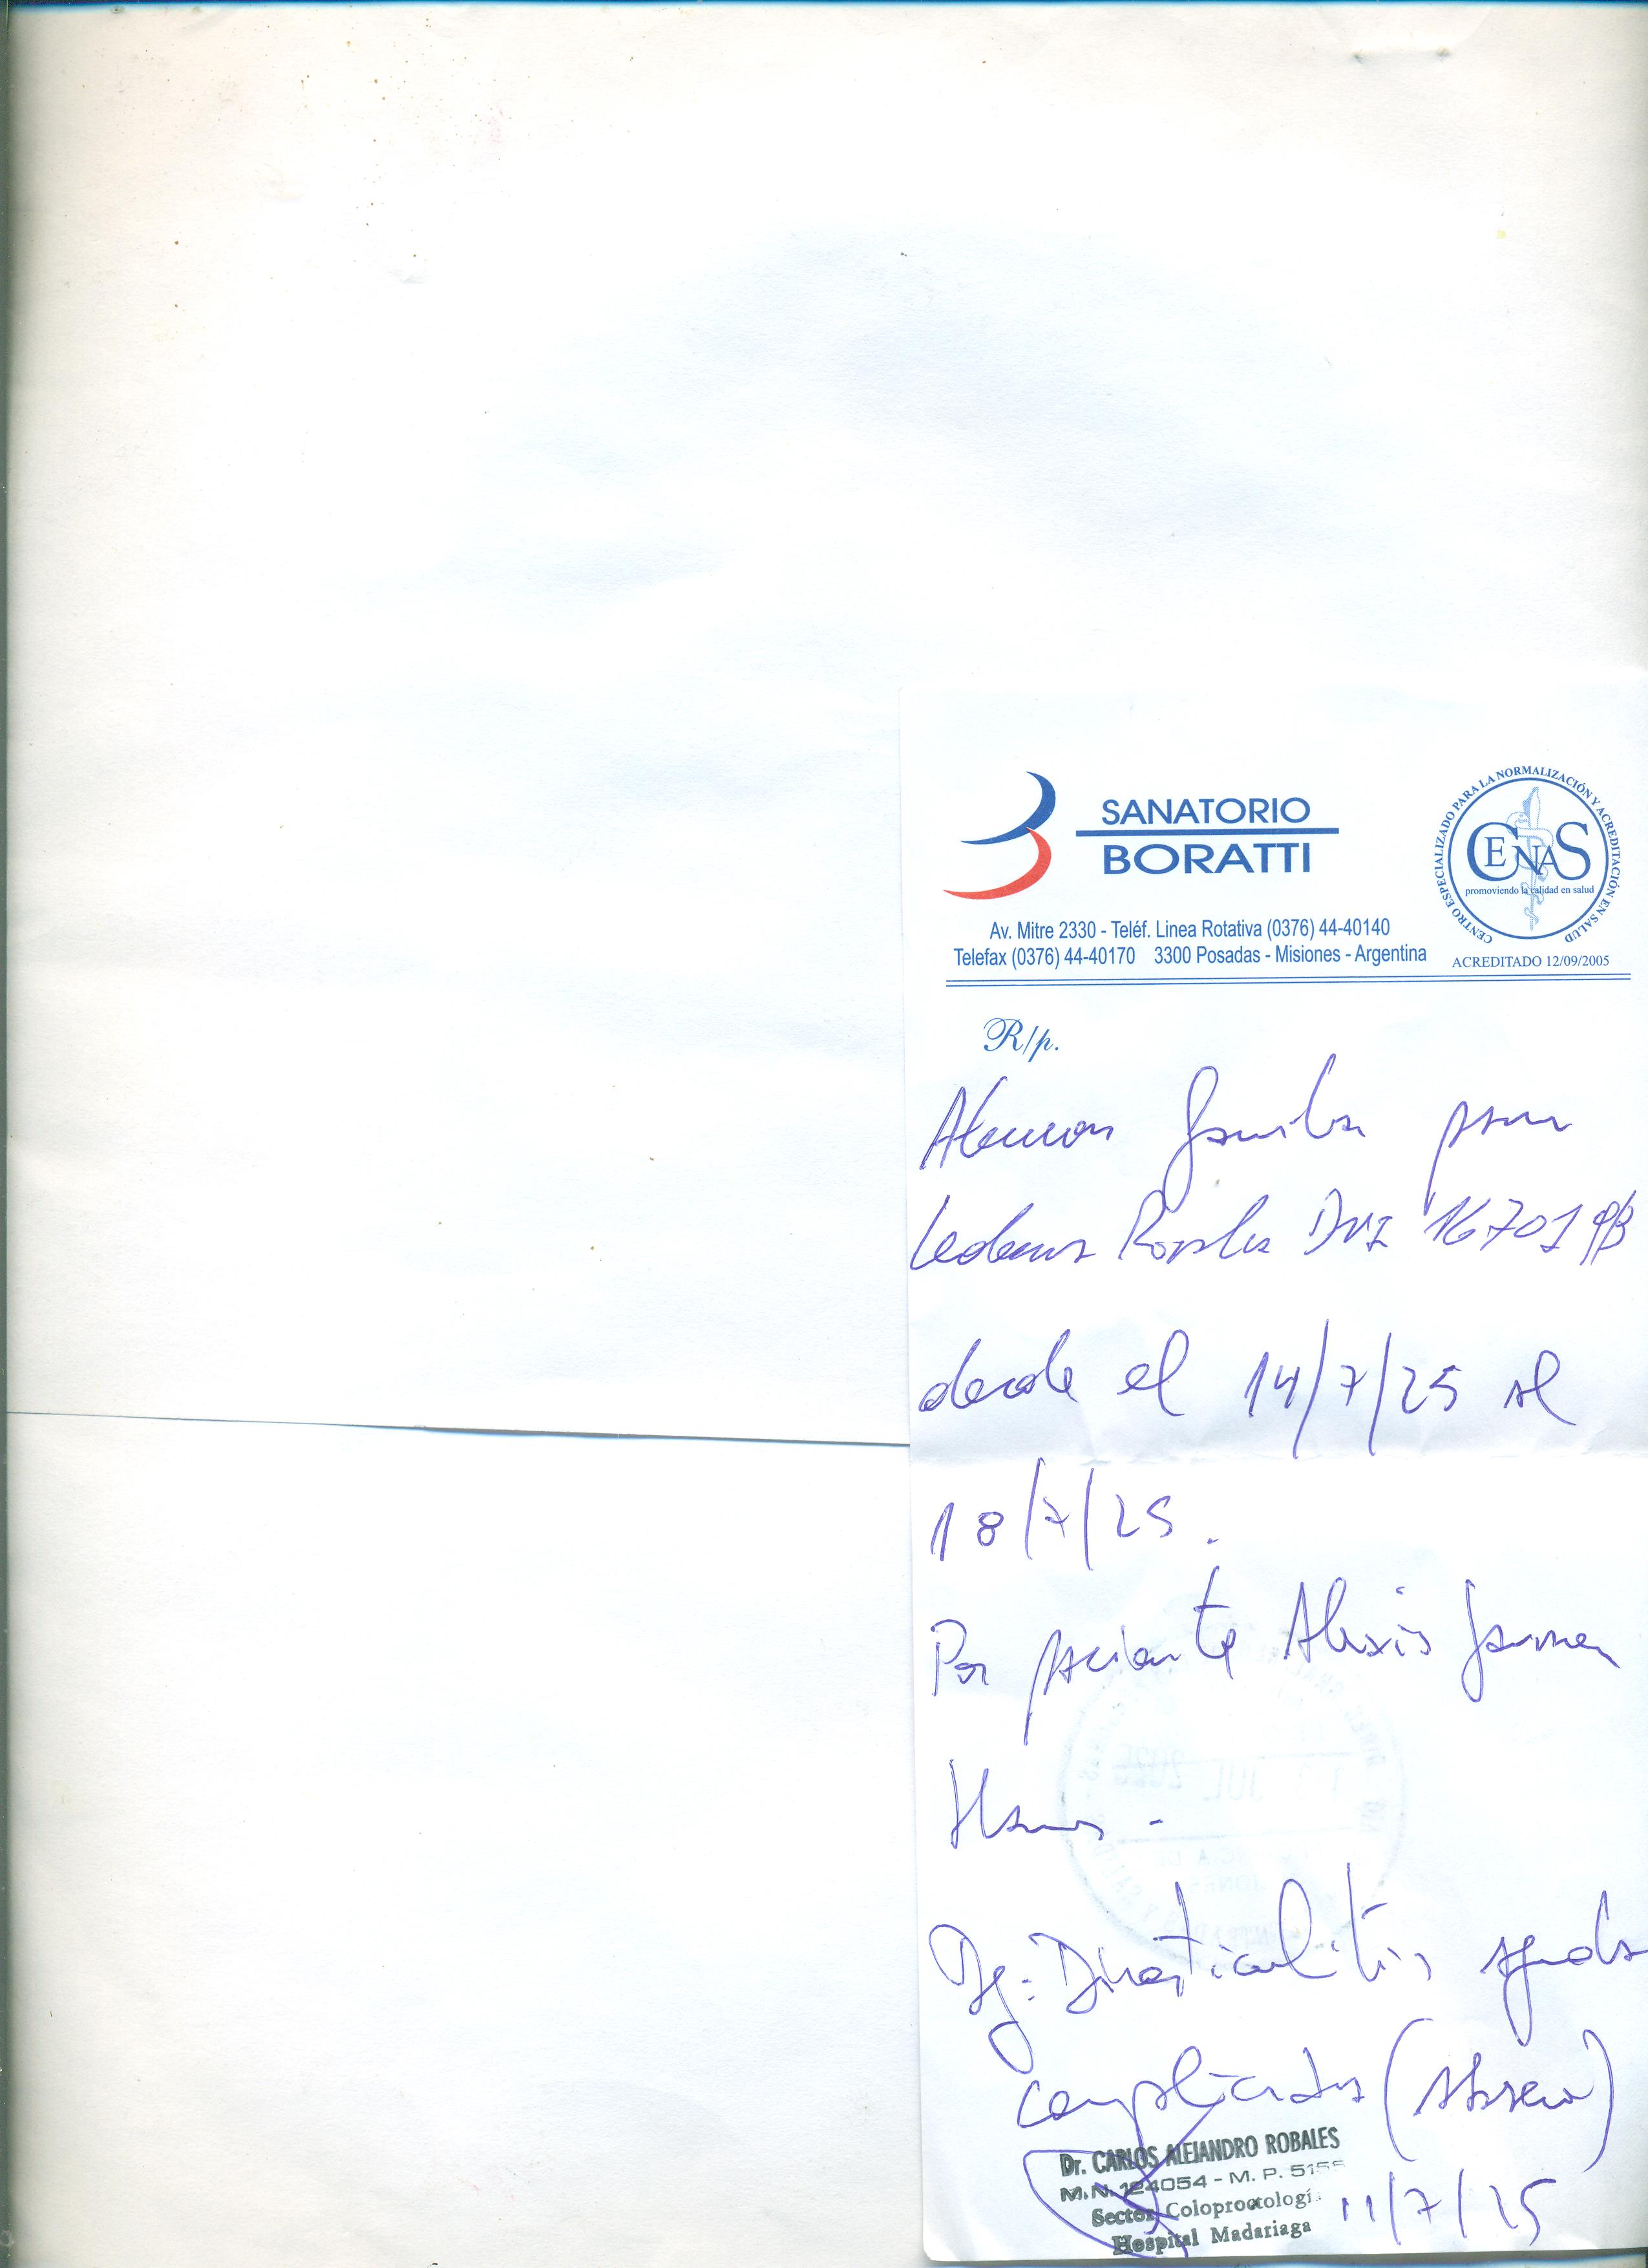 SANATORIO
BORATTI
CENTRO ESPECIALIZADO PARA LA NORMALIZACIÓN Y ACREDITACIÓN EN SALUD
CENAS
promoviendo la calidad en salud
ACREDITADO 12/09/2005
Av. Mitre 2330 - Teléf. Linea Rotativa (0376) 44-40140
Telefax (0376) 44-40170 3300 Posadas - Misiones - Argentina
R/p.
familiar para
DNI 16701
desde el 14/7/25 al
18/7/25.
Por paciente Alexis
Dg: Diverticulitis aguda
complicada (absceso)
Dr. CARLOS ALEJANDRO ROBALES
M.N. 124054 - M. P. 5155
Sector Coloproctologí
Hospital Madariaga
11/7/25